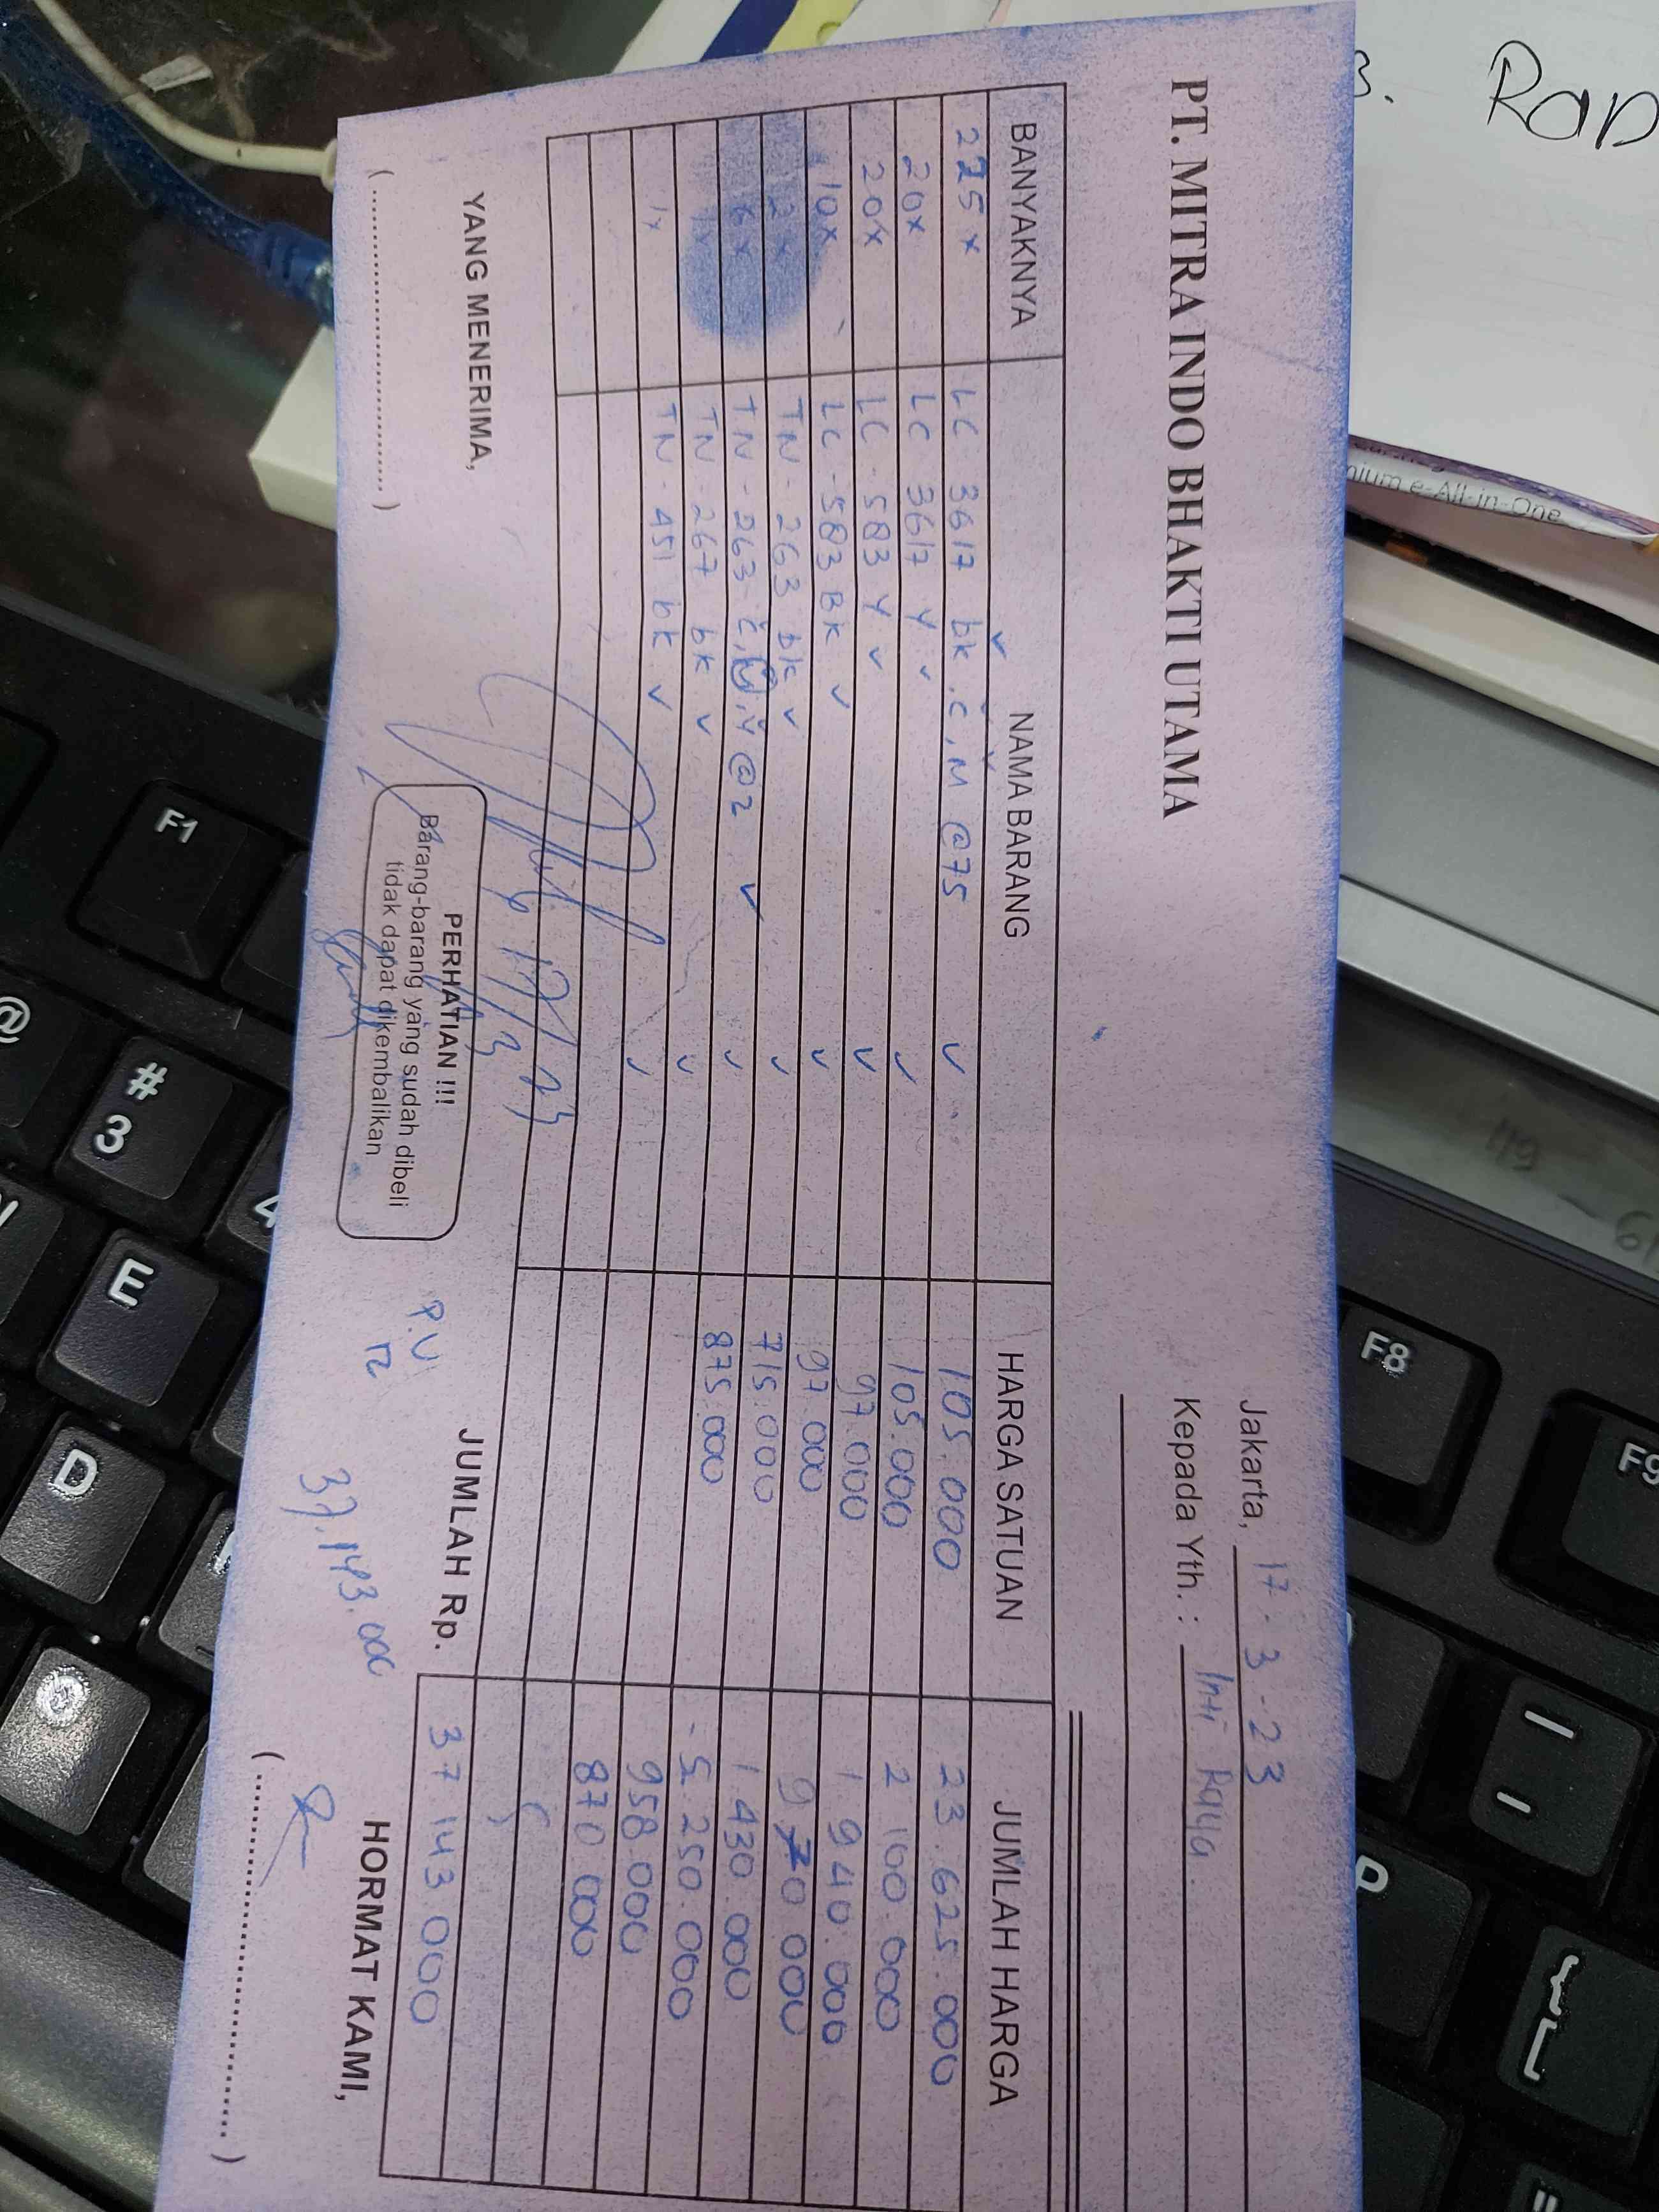 PT. MITRA INDO BHAKTI UTAMA
Jakarta, 17 - 3 - 23
Kepada Yth. : Inti Raya
BANYAKNYA NAMA BARANG HARGA SATUAN JUMLAH HARGA
225 x LC 3617 bk, C, M @75 105.000 23.625.000
20x LC 3617 Y 105.000 2.100.000
20x LC - 583 Y 97.000 1.940.000
10x LC - 583 BK 97.000 970.000
2x TN - 263 bk 715.000 1.430.000
6x TN - 263 C, M, Y @2 875.000 5.250.000
1x TN - 267 bk 958.000
1x TN - 451 bk 870.000
YANG MENERIMA,
(........................)
17/3 23
PERHATIAN !!!
Barang-barang yang sudah dibeli
tidak dapat dikembalikan
P.V
JUMLAH Rp. 37.143.000
37.143.000
HORMAT KAMI,
(........................)
3. Ran
mium e-All-in-One
F1
@
#
3
4
E
D
F8
F9
P
{
[